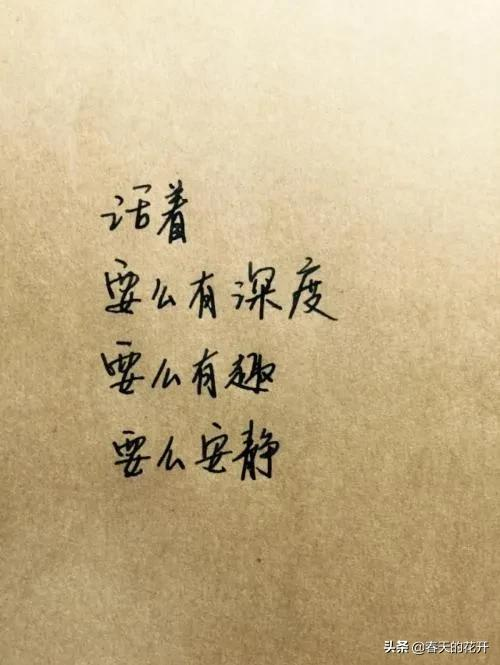 活着
要么有深度
要么有趣
要么安静
头条 @春天的花开